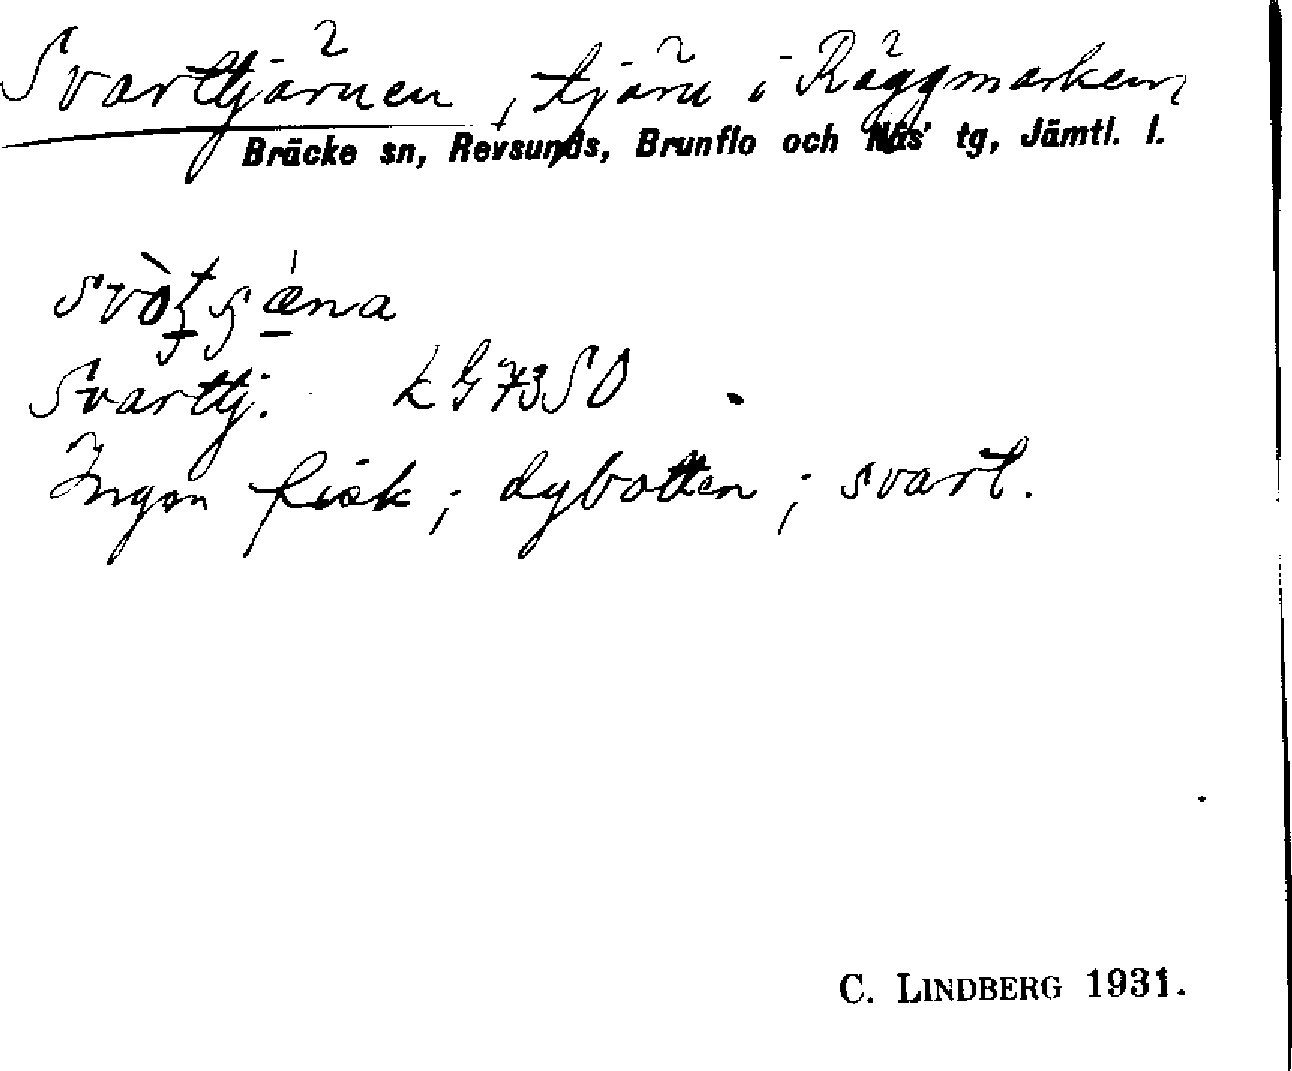 Svarttjärnen, tjärn i Räggmarken,
Bräcke sn, Revsunds, Brunflo och Näs' tg, Jämtl. l.
Svarttj. kG73SO
Ingen fisk; dybotten; svart.
C. LINDBERG 1931.